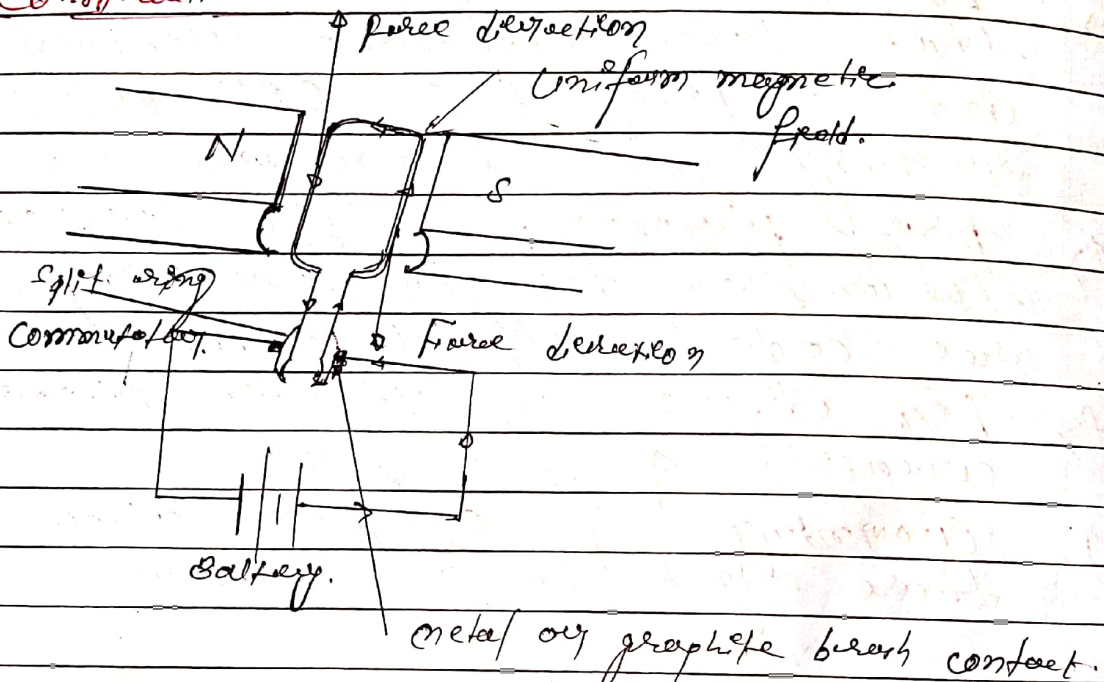 Force direction
Uniform magnetic
field.
N
S
Split ring
Commutator.
Force direction
Battery.
metal or graphite brush contact.